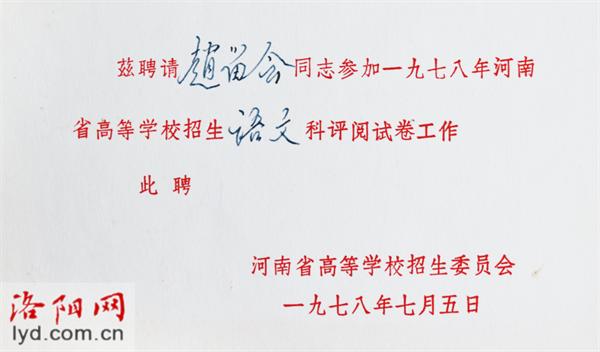 兹聘请趙留会同志参加一九七八年河南
省高等学校招生语文科评阅试卷工作
此聘
河南省高等学校招生委员会
一九七八年七月五日
洛阳网
lyd.com.cn